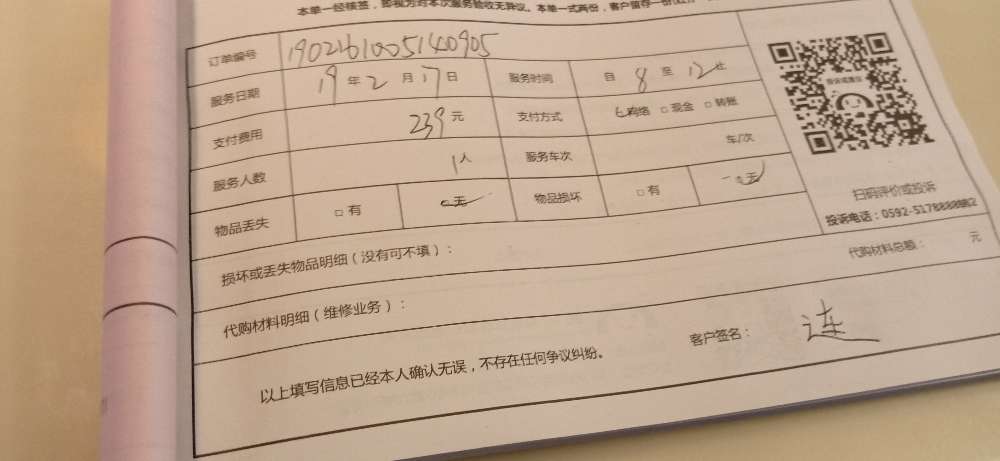 本单一经核签，即视为对本次服务验收无异议。本单一式两份，客户留存一份
订单编号 1902161005140905
服务日期 19年2月17日 服务时间 自8至12止
支付费用 239元 支付方式 网络 □现金 □转账
服务人数 1人 服务车次 车/次
物品丢失 □有 □无 物品损坏 □有 □无
投诉或建议
扫码评价或投诉
投诉电话：0592-5178
损坏或丢失物品明细（没有可不填）：
代购材料明细（维修业务）： 代购材料总额： 元
以上填写信息已经本人确认无误，不存在任何争议纠纷。 客户签名： 连